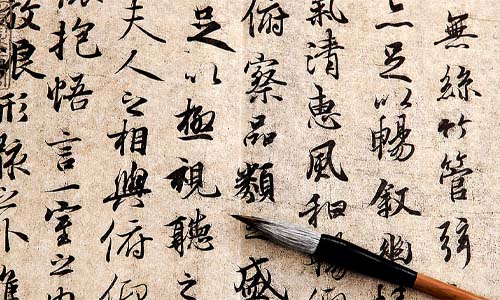 無絲竹管弦
亦足以暢叙幽
氣清惠風和暢
俯察品類之盛
足以極視聽之
夫人之相與俯仰
抱悟言一室之内
放浪形骸之外雖